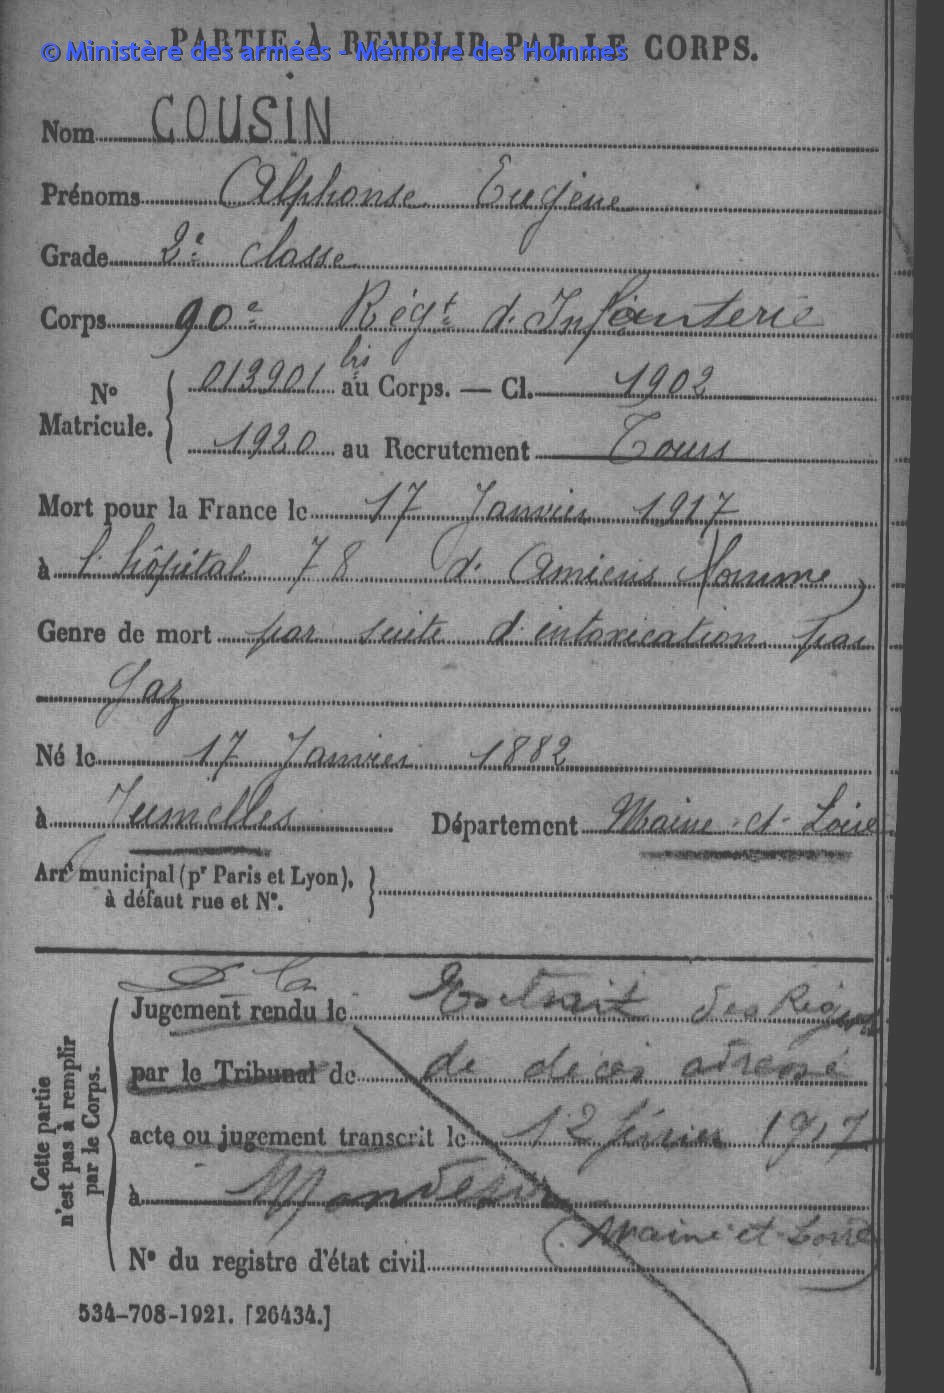 PARTIE À REMPLIR PAR LE CORPS.
© Ministère des armées - Mémoire des Hommes
Nom COUSIN
Prénoms Alphonse Eugène
Grade 2e classe
Corps 90e Régt d'Infanterie
No Matricule. 013901 bis au Corps. — Cl. 1902
1920 au Recrutement Tours
Mort pour la France le 17 Janvier 1917
à l'hôpital 78 d'Amiens Somme
Genre de mort par suite d'intoxication par
Gaz
Né le 17 Janvier 1882
à Jumelles Département Maine-et-Loire
Arrt municipal (pr Paris et Lyon),
à défaut rue et No.
Cette partie
n'est pas à remplir
par le Corps.
Jugement rendu le Extrait des Reg
par le Tribunal de de décès adressé
acte ou jugement transcrit le 12 février 1917
à
(Maine et Loire)
No du registre d'état civil
534-708-1921. [26434.]